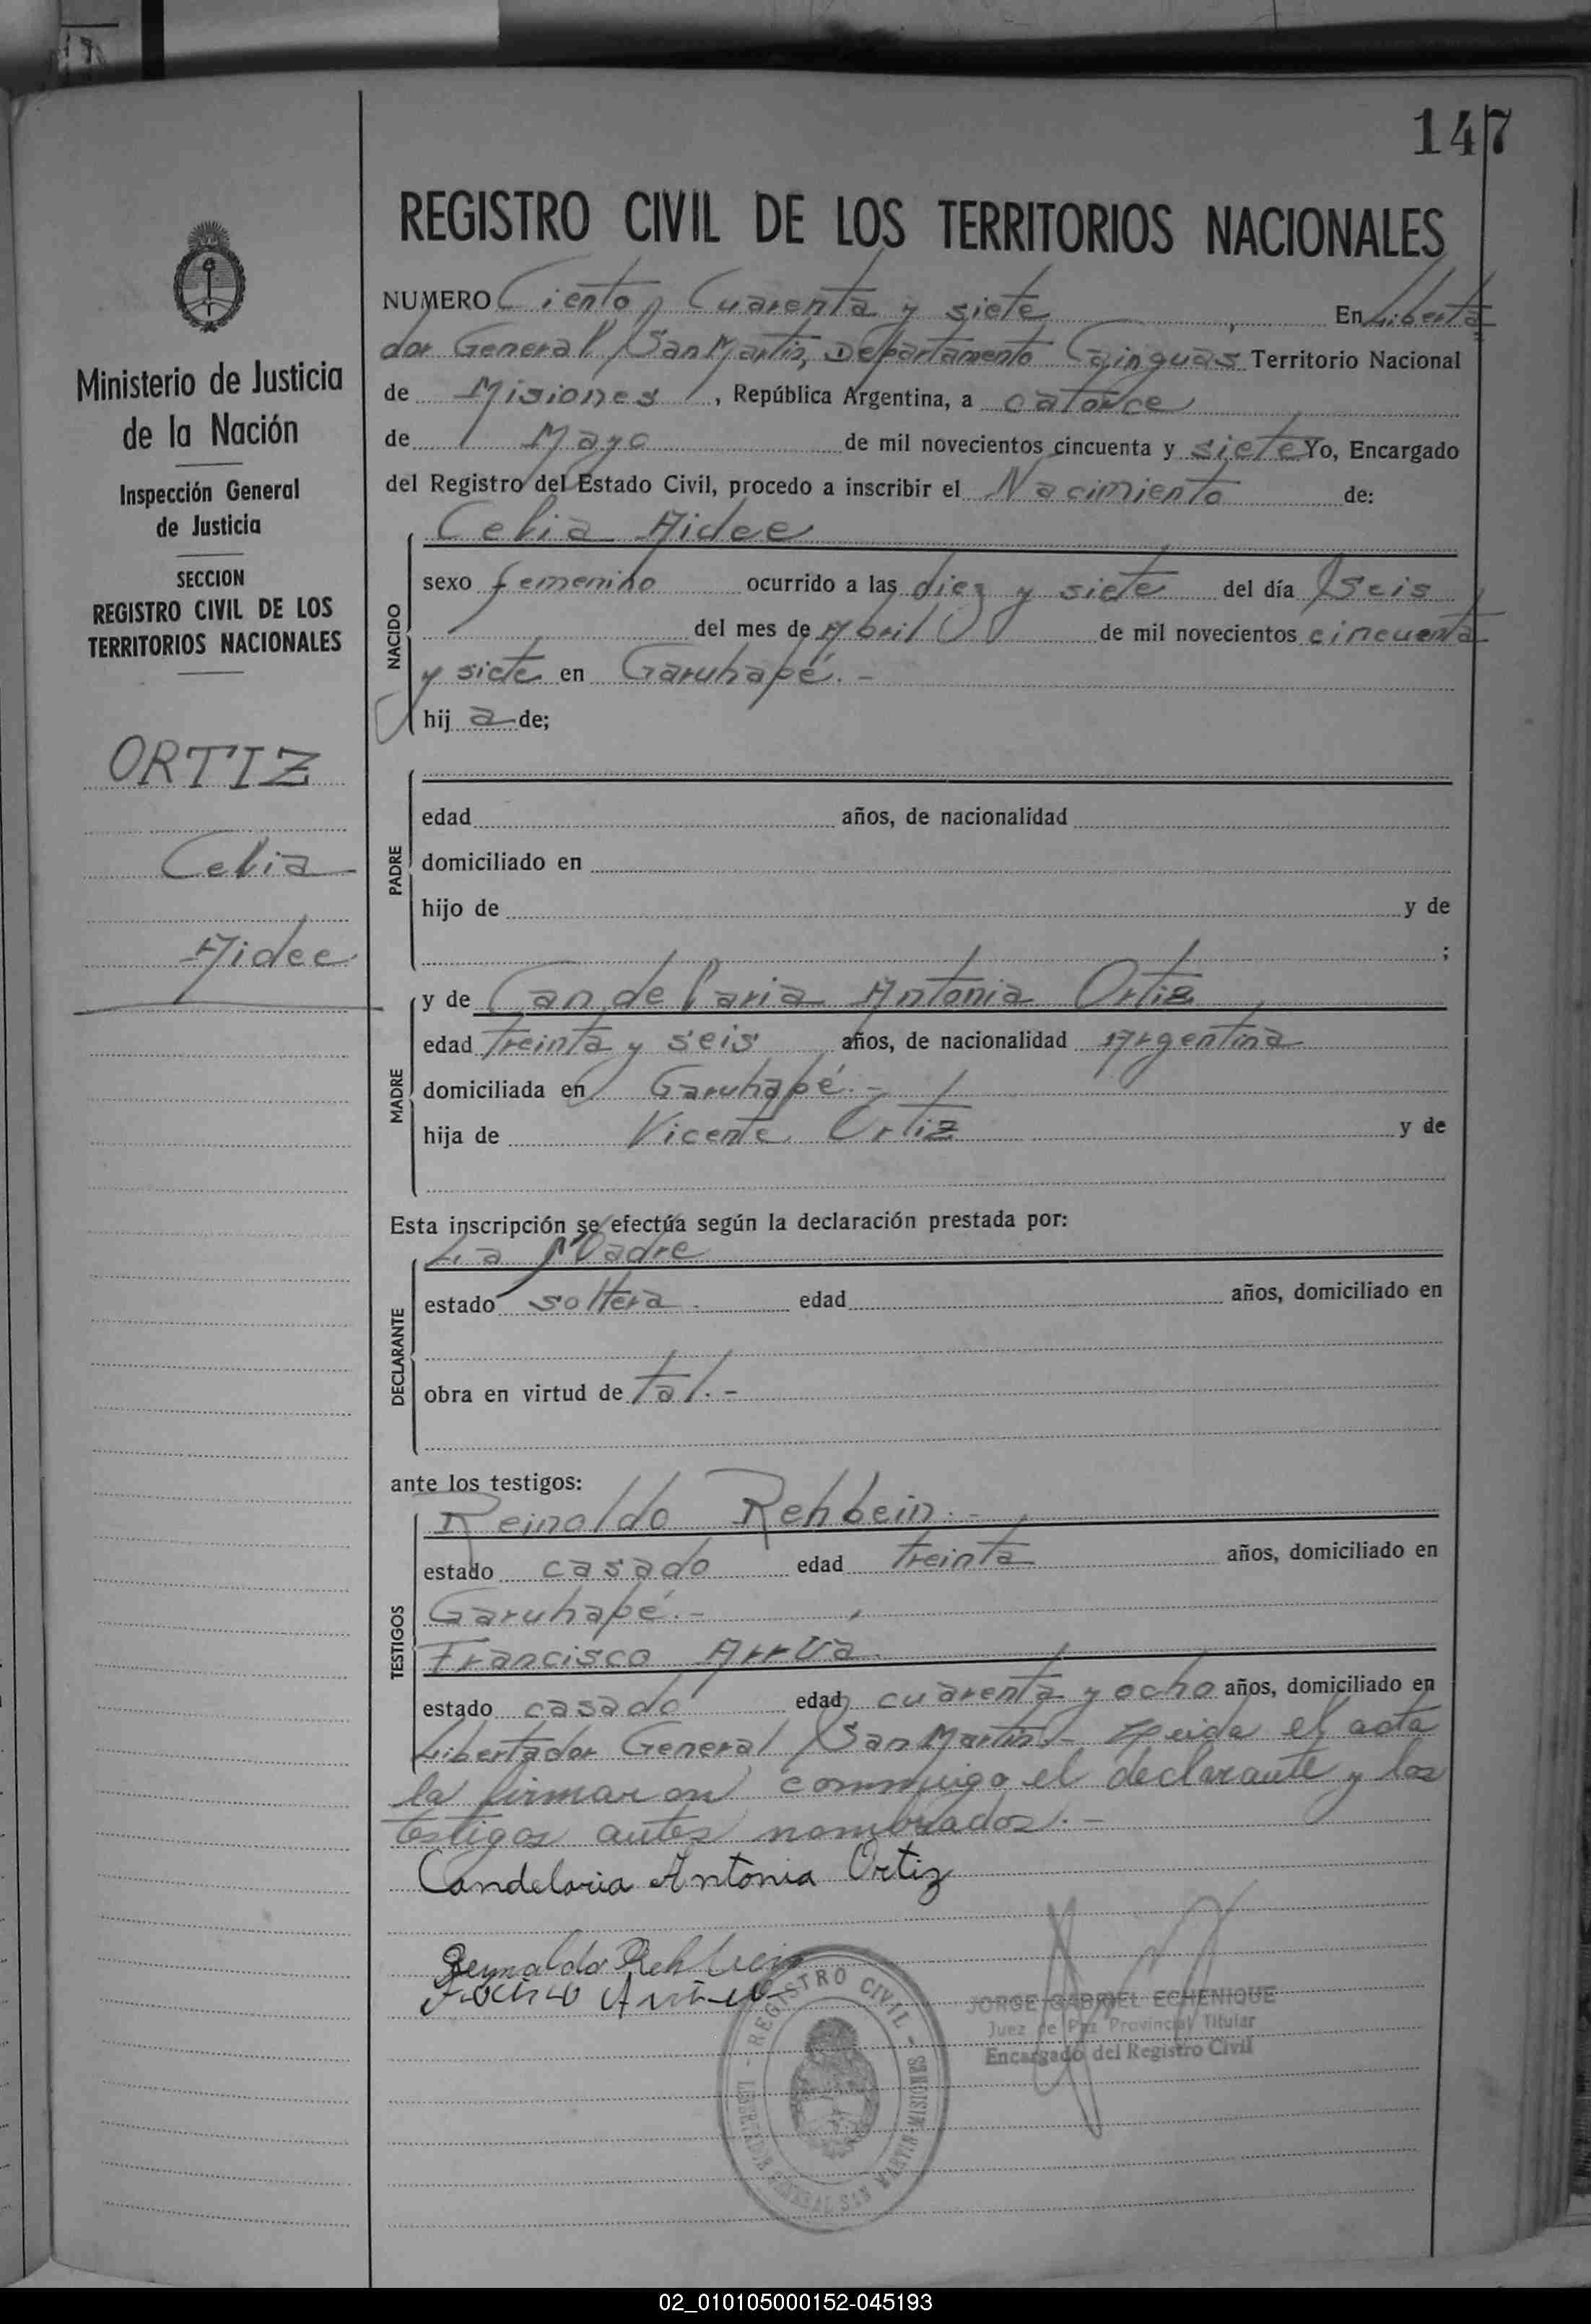 147
REGISTRO CIVIL DE LOS TERRITORIOS NACIONALES
Ministerio de Justicia
de la Nación
Inspección General
de Justicia
SECCION
REGISTRO CIVIL DE LOS
TERRITORIOS NACIONALES
ORTIZ
Celia
Aidee
NUMERO Ciento Cuarenta y siete, En Liberta
dor General San Martin, Departamento Cainguas Territorio Nacional
de Misiones, República Argentina, a catorce
de Mayo de mil novecientos cincuenta y siete Yo, Encargado
del Registro del Estado Civil, procedo a inscribir el Nacimiento de:
NACIDO
Celia Aidee
sexo femenino ocurrido a las diez y siete del día seis
del mes de Abril de mil novecientos cincuenta
y siete en Garuhapé.-
hij a de;
PADRE
edad años, de nacionalidad
domiciliado en
hijo de y de
;
MADRE
y de Candelaria Antonia Ortiz
edad treinta y seis años, de nacionalidad Argentina
domiciliada en Garuhapé.-
hija de Vicente Ortiz y de
Esta inscripción se efectúa según la declaración prestada por:
DECLARANTE
La Madre
estado soltera edad años, domiciliado en
obra en virtud de tal.-
ante los testigos:
TESTIGOS
Reinoldo Rehbein.-
estado casado edad treinta años, domiciliado en
Garuhapé.-
Francisco Arrua
estado casado edad cuarenta y ocho años, domiciliado en
Libertador General San Martin.- Leida el acta
la firmaron conmigo el declarante y los
testigos antes nombrados.-
Candelaria Antonia Ortiz
Reynoldo Rehbein
REGISTRO CIVIL - LIBERTADOR GENERAL SAN MARTIN - MISIONES
JORGE GABRIEL ECHENIQUE
Juez de Paz Provincial Titular
Encargado del Registro Civil
02_010105000152-045193